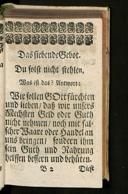 Das siebende Gebot.
Du solst nicht stehlen.
Was ist das? Antwort:
Wir sollen GOtt fürchten
und lieben, daß wir unsers
Nechsten Geld oder Guth
nicht nehmen, noch mit fal-
scher Waare oder Handel an
uns bringen, sondern ihm
sein Guth und Nahrung
helffen bessern und behüten.
B 2 Das